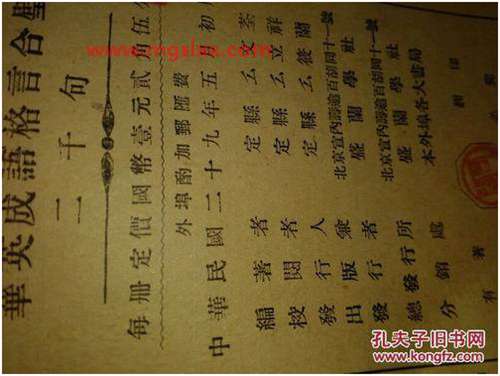 華英成語格言合璧
二千句
每冊定價國幣壹元貳角伍
外埠酌加郵匯費
中華民國二十九年五月初
編著者 定縣么文荃
校閱者 定縣么立祥
發行人 定縣么蘭
出版兼發行者 盛蘭學社
北京宣內溝沿百胡同十一號
總發行所 盛蘭學社
北京宣內溝沿百胡同十一號
分銷處 本外埠各大書局
有著
印
孔夫子旧书网
www.kongfz.com